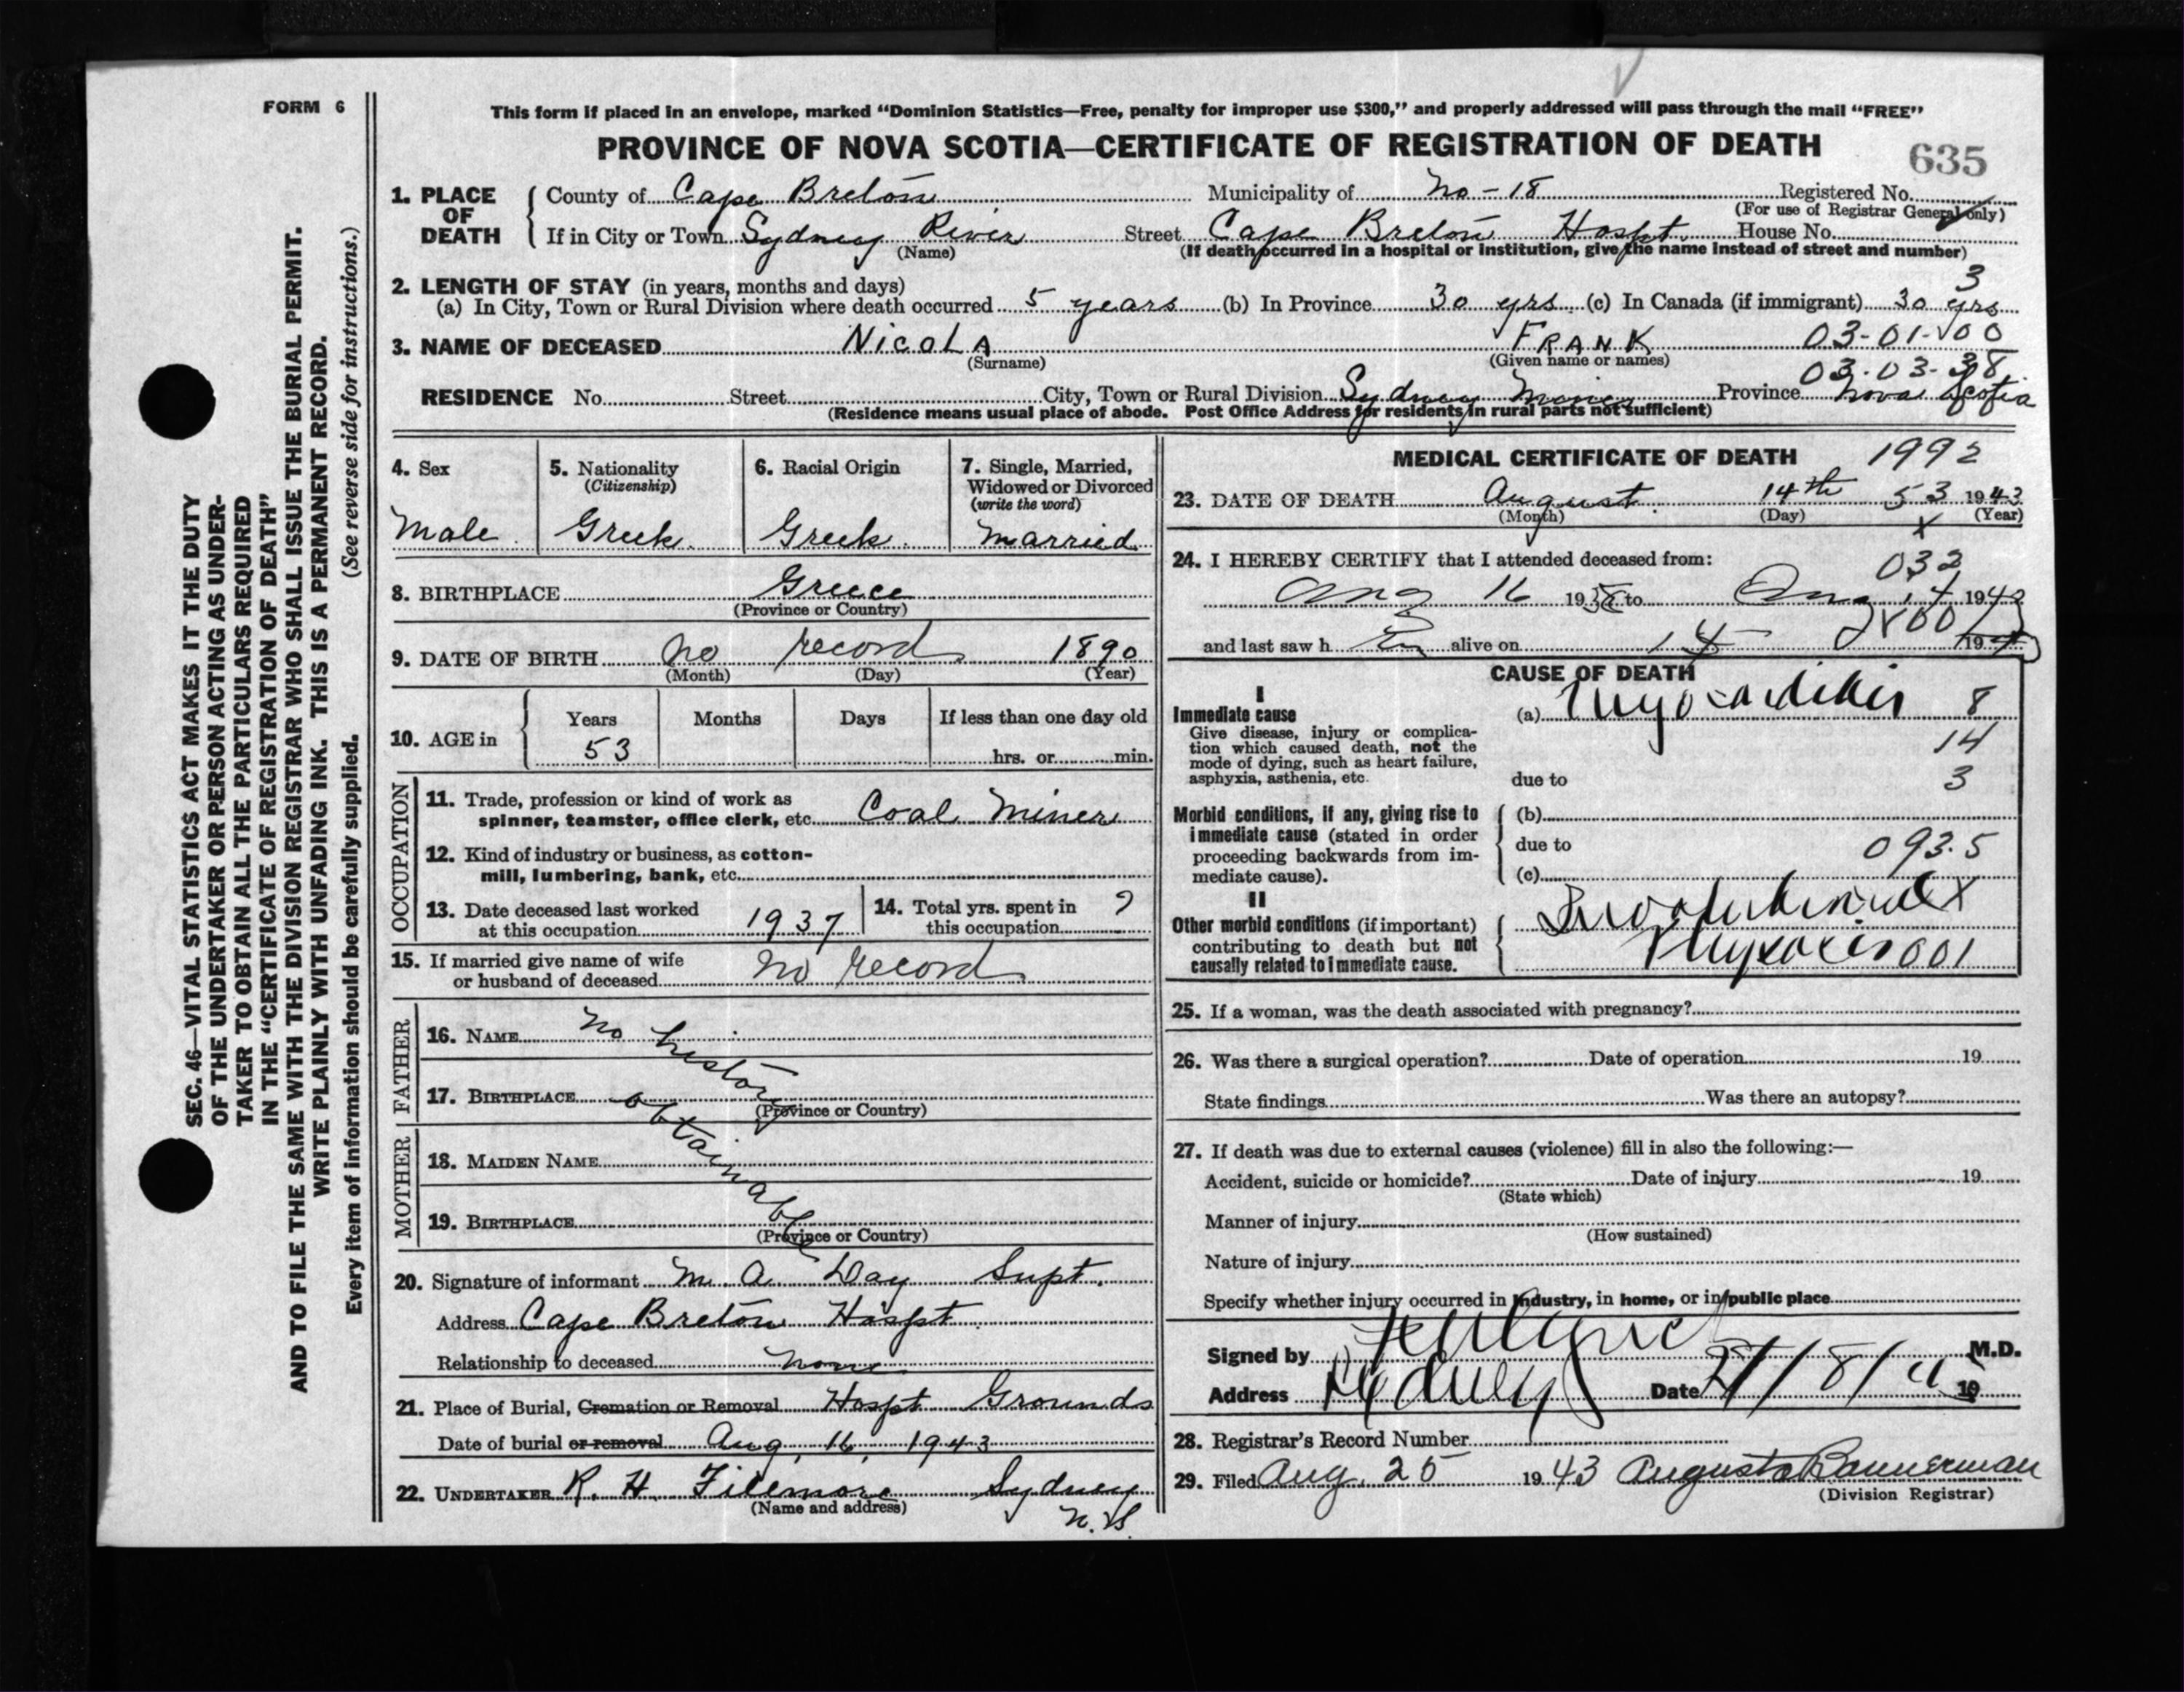 FORM 6
This form if placed in an envelope, marked “Dominion Statistics—Free, penalty for improper use $300,” and properly addressed will pass through the mail “FREE”
PROVINCE OF NOVA SCOTIA—CERTIFICATE OF REGISTRATION OF DEATH
635
1. PLACE OF DEATH
County of Cape Breton Municipality of No - 18 Registered No.
(For use of Registrar General only)
If in City or Town Sydney River Street Cape Breton Hospt. House No.
(Name) (If death occurred in a hospital or institution, give the name instead of street and number)
2. LENGTH OF STAY (in years, months and days) 3
(a) In City, Town or Rural Division where death occurred 5 years (b) In Province 30 yrs (c) In Canada (if immigrant) 30 yrs
3. NAME OF DECEASED NicolA FRANK 03-01-00
(Surname) (Given name or names)
03-03-38
RESIDENCE No. Street City, Town or Rural Division Sydney Mines Province Nova Scotia
(Residence means usual place of abode. Post Office Address for residents in rural parts not sufficient)
4. Sex
Male
5. Nationality
(Citizenship)
Greek
6. Racial Origin
Greek
7. Single, Married,
Widowed or Divorced
(write the word)
Married
8. BIRTHPLACE Greece
(Province or Country)
9. DATE OF BIRTH no record 1890
(Month) (Day) (Year)
10. AGE in Years Months Days If less than one day old
53 hrs. or min.
OCCUPATION
11. Trade, profession or kind of work as
spinner, teamster, office clerk, etc. Coal Miner
12. Kind of industry or business, as cotton-
mill, lumbering, bank, etc.
13. Date deceased last worked
at this occupation 1937
14. Total yrs. spent in
this occupation ?
15. If married give name of wife
or husband of deceased no record
FATHER
16. NAME no history
17. BIRTHPLACE obtainable
(Province or Country)
MOTHER
18. MAIDEN NAME
19. BIRTHPLACE
(Province or Country)
20. Signature of informant M. A. Day Supt.
Address Cape Breton Hospt.
Relationship to deceased none
21. Place of Burial, Cremation or Removal Hospt Grounds
Date of burial or removal Aug, 16, 1943
22. UNDERTAKER R. H. Fillmore Sydney
(Name and address)
N. S.
MEDICAL CERTIFICATE OF DEATH 1992
23. DATE OF DEATH August 14th 53 1943
(Month) (Day) (Year)
x
24. I HEREBY CERTIFY that I attended deceased from:
032
Aug 16 19 to Aug 14 1943
and last saw h alive on 14 19
CAUSE OF DEATH
I
Immediate cause
Give disease, injury or complica-
tion which caused death, not the
mode of dying, such as heart failure,
asphyxia, asthenia, etc.
(a) Myocarditis 8
14
due to 3
Morbid conditions, if any, giving rise to
immediate cause (stated in order
proceeding backwards from im-
mediate cause).
(b)
due to 093.5
(c)
II
Other morbid conditions (if important)
contributing to death but not
causally related to immediate cause.
x
001
25. If a woman, was the death associated with pregnancy?
26. Was there a surgical operation? Date of operation 19
State findings Was there an autopsy?
27. If death was due to external causes (violence) fill in also the following:—
Accident, suicide or homicide? Date of injury 19
(State which)
Manner of injury
(How sustained)
Nature of injury
Specify whether injury occurred in industry, in home, or in public place
Signed by M.D.
Address Sydney Date 19
28. Registrar's Record Number
29. Filed Aug. 25 1943 Augusta Bannerman
(Division Registrar)
SEC. 46—VITAL STATISTICS ACT MAKES IT THE DUTY
OF THE UNDERTAKER OR PERSON ACTING AS UNDER-
TAKER TO OBTAIN ALL THE PARTICULARS REQUIRED
IN THE “CERTIFICATE OF REGISTRATION OF DEATH”
AND TO FILE THE SAME WITH THE DIVISION REGISTRAR WHO SHALL ISSUE THE BURIAL PERMIT.
WRITE PLAINLY WITH UNFADING INK. THIS IS A PERMANENT RECORD.
Every item of information should be carefully supplied. (See reverse side for instructions.)